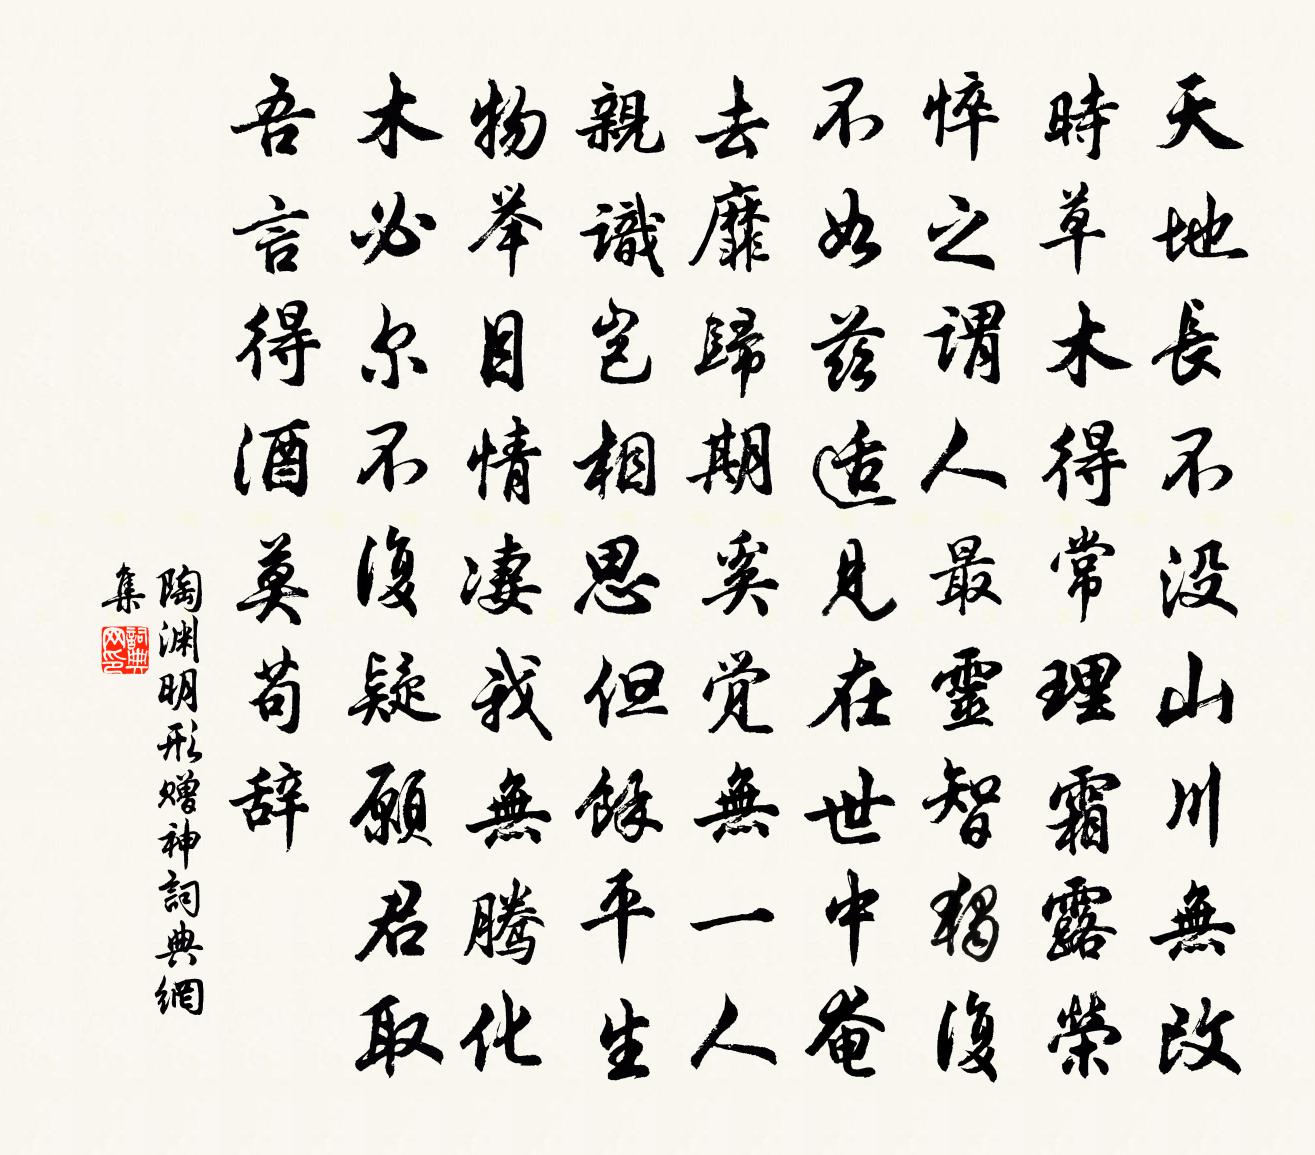 天地長不没山川無改
時草木得常理霜露榮
悴之謂人最靈智獨復
不如茲适見在世中奄
去靡歸期奚觉無一人
親識岂相思但餘平生
物举目情凄我無騰化
木必尔不復疑願君取
吾言得酒莫苟辞
陶渊明形赠神詞典網
集
詞典
网印